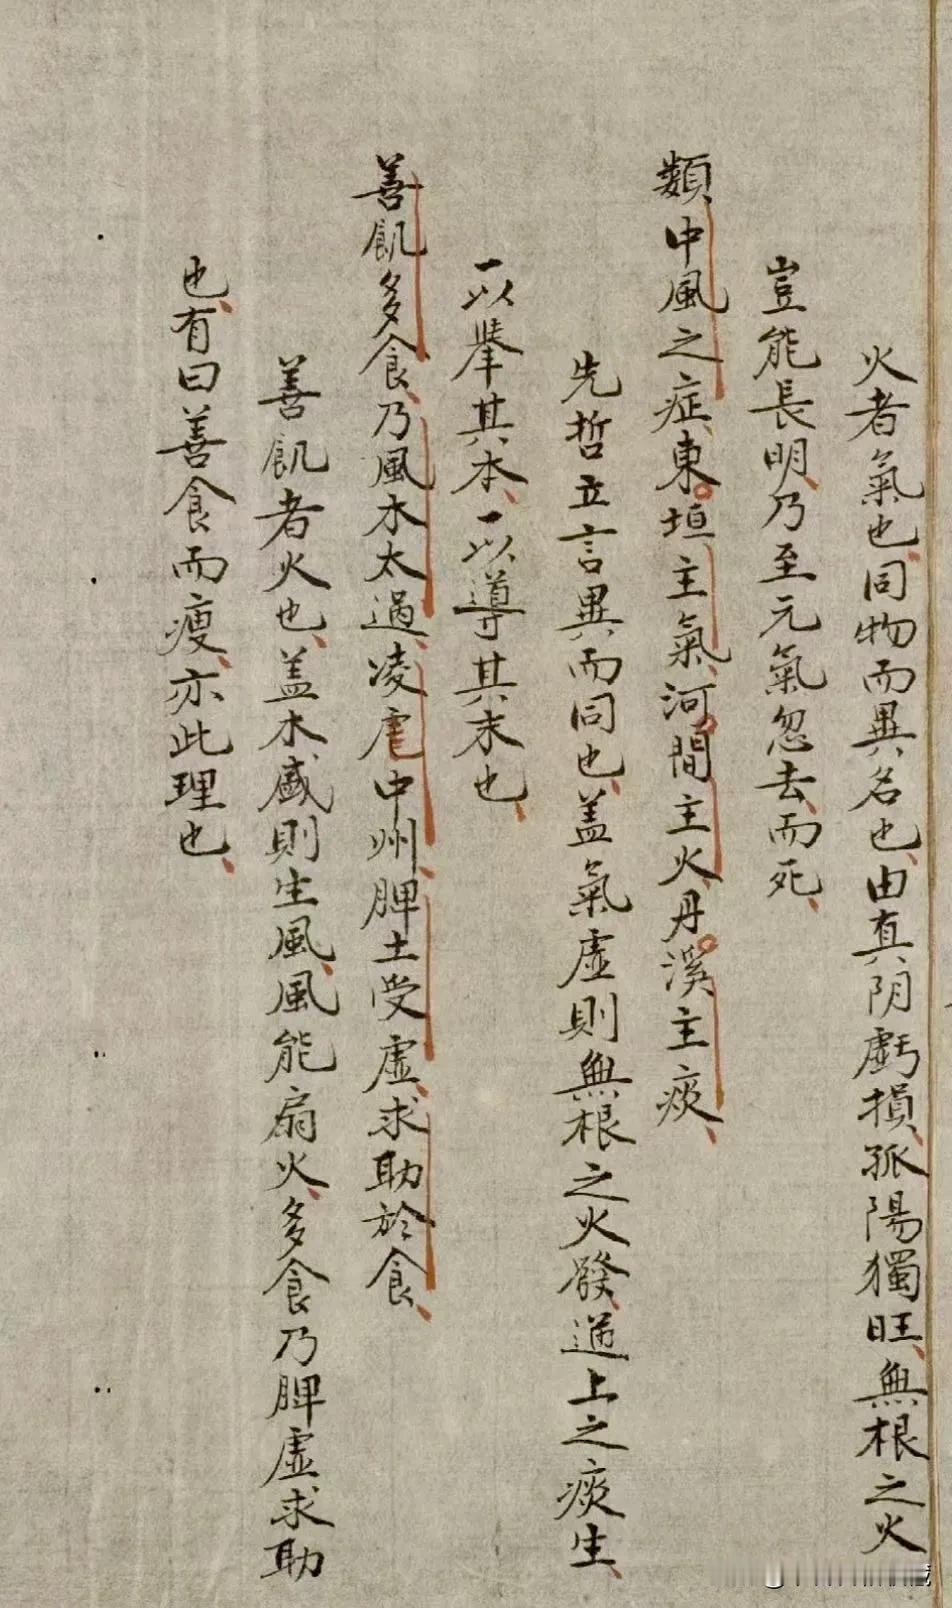 火者氣也同物而異名也由真阴虧損孤陽獨旺無根之火
豈能長明乃至元氣忽去而死
類中風之症東垣主氣河間主火丹溪主痰
先哲立言異而同也盖氣虛則無根之火發逆上之痰生
一以舉其本一以導其末也
善飢多食乃風木太過凌虐中州脾土受虛求助於食
善飢者火也盖木盛則生風風能扇火多食乃脾虛求助
也有曰善食而瘦亦此理也